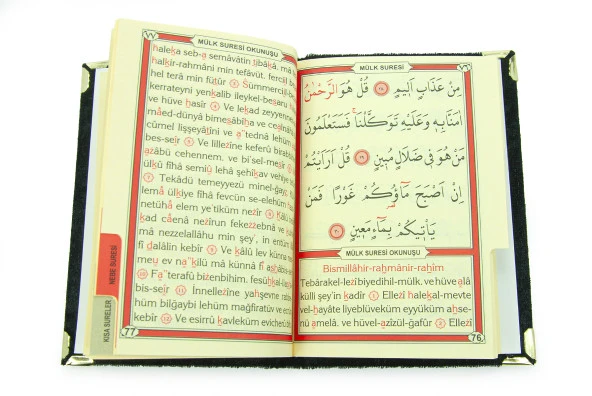 MÜLK SURESİ ٧٦
مِنْ عَذَابٍ اَلٖيمٍ ﴿٢٨﴾ قُلْ هُوَ الرَّحْمٰنُ
اٰمَنَّا بِهٖ وَعَلَيْهِ تَوَكَّلْنَا فَسَتَعْلَمُونَ
مَنْ هُوَ فٖى ضَلَالٍ مُبٖينٍ ﴿٢٩﴾ قُلْ اَرَاَيْتُمْ
اِنْ اَصْبَحَ مَٓاؤُكُمْ غَوْرًا فَمَنْ
يَأْتٖيكُمْ بِمَٓاءٍ مَعٖينٍ ﴿٣٠﴾
MÜLK SURESİ OKUNUŞU
Bismillâhir-rahmânir-rahîm
Tebârakel-lezî biyedihil-mülk, ve hüve alâ
külli şey'in kadîr ① Ellezî halekal-mevte
vel-hayâte liyeblüveküm eyyüküm ahse-
nü amelâ, ve hüvel-azîzül-ğafûr ② Ellezî
76
٧٧ MÜLK SURESİ OKUNUŞU
haleka seb-a semâvâtin tıbâkâ, mâ
halkır-rahmâni min tefâvüt, fercil
hel terâ min fütûr ③ Sümmercil-
kerrateyni yenkalib ileykel-besa
ve hüve hasîr ④ Ve lekad zeyyen
mâed-dünyâ bimesâbîha ve cealnâ
cûmel lişşeyâtîni ve a'tednâ lehüm
bes-seîr ⑤ Ve lillezîne keferû birabb
azâbü cehennem, ve bi'sel-mesîr ⑥
ülkû fîhâ semiû lehâ şehîkav vehiye
⑦ Tekâdü temeyyezü minel-ğayz,
lemâ ülkıye fîhâ fevcün se-elehüm
netühâ elem ye'tiküm nezîr ⑧ Kâlû
kad câenâ nezîrun fekezzebnâ ve
mâ nezzelallâhu min şey', in entüm
fî dalâlin kebîr ⑨ Ve kâlû lev künnâ
meu ev na'kılü mâ künnâ fî ashâbis-
⑩ Fa'terafû bizenbihim, fesühkal-
bis-seîr ⑪ İnnellezîne yahşevne
hüm bilğaybi lehüm mağfiratüv ve
kebîr ⑫ Ve esirrû kavleküm evicherû
77
NEBE SURESİ
KISA SURELER